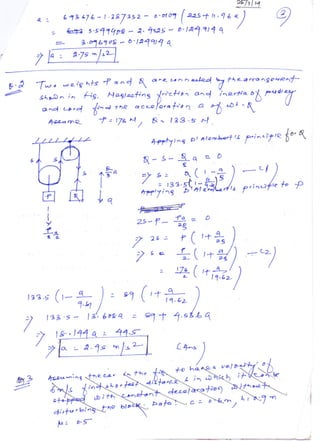 25/1/19
2
a = 6.93676 - 1.257352 - 0.0109 (225+11.96a)
= 5.599408 - 2.4525 - 0.124914 a
= 3.096908 - 0.124914 a
⇒ a = 2.75 m/s²
Q-2 Two weights P and Q are connected by the arrangement
shown in fig. Neglecting friction and inertia of pulley
and cord find the acceleration a of wt. Q
Assume P = 178 N, Q = 133.5 N.
Applying D'Alembert's principle for Q
Q - S - Q/g a = 0
⇒ S = Q (1 - a/g) —(1)
= 133.5 (1 - a/9.81)
Applying D'Alembert's principle to P
2S - P - Pa/2g = 0
⇒ 2S = P (1 + a/2g)
⇒ S = P/2 (1 + a/2g) —(2)
= 178/2 (1 + a/19.62)
S S S
Q/g a
P Q
a
133.5 (1 - a/9.81) = 89 (1 + a/19.62)
⇒ 133.5 - 13.608a = 89 + 4.536a
⇒ 18.144 a = 44.5
⇒ a = 2.45 m/s² (Ans)
Q3 Assuming the car in the fig to have a velocity of
6 m/s find shortest distance s in which it can be
stopped with constant deceleration without
disturbing the block. Data: c = 0.6m, h = 0.9m
μ = 0.5